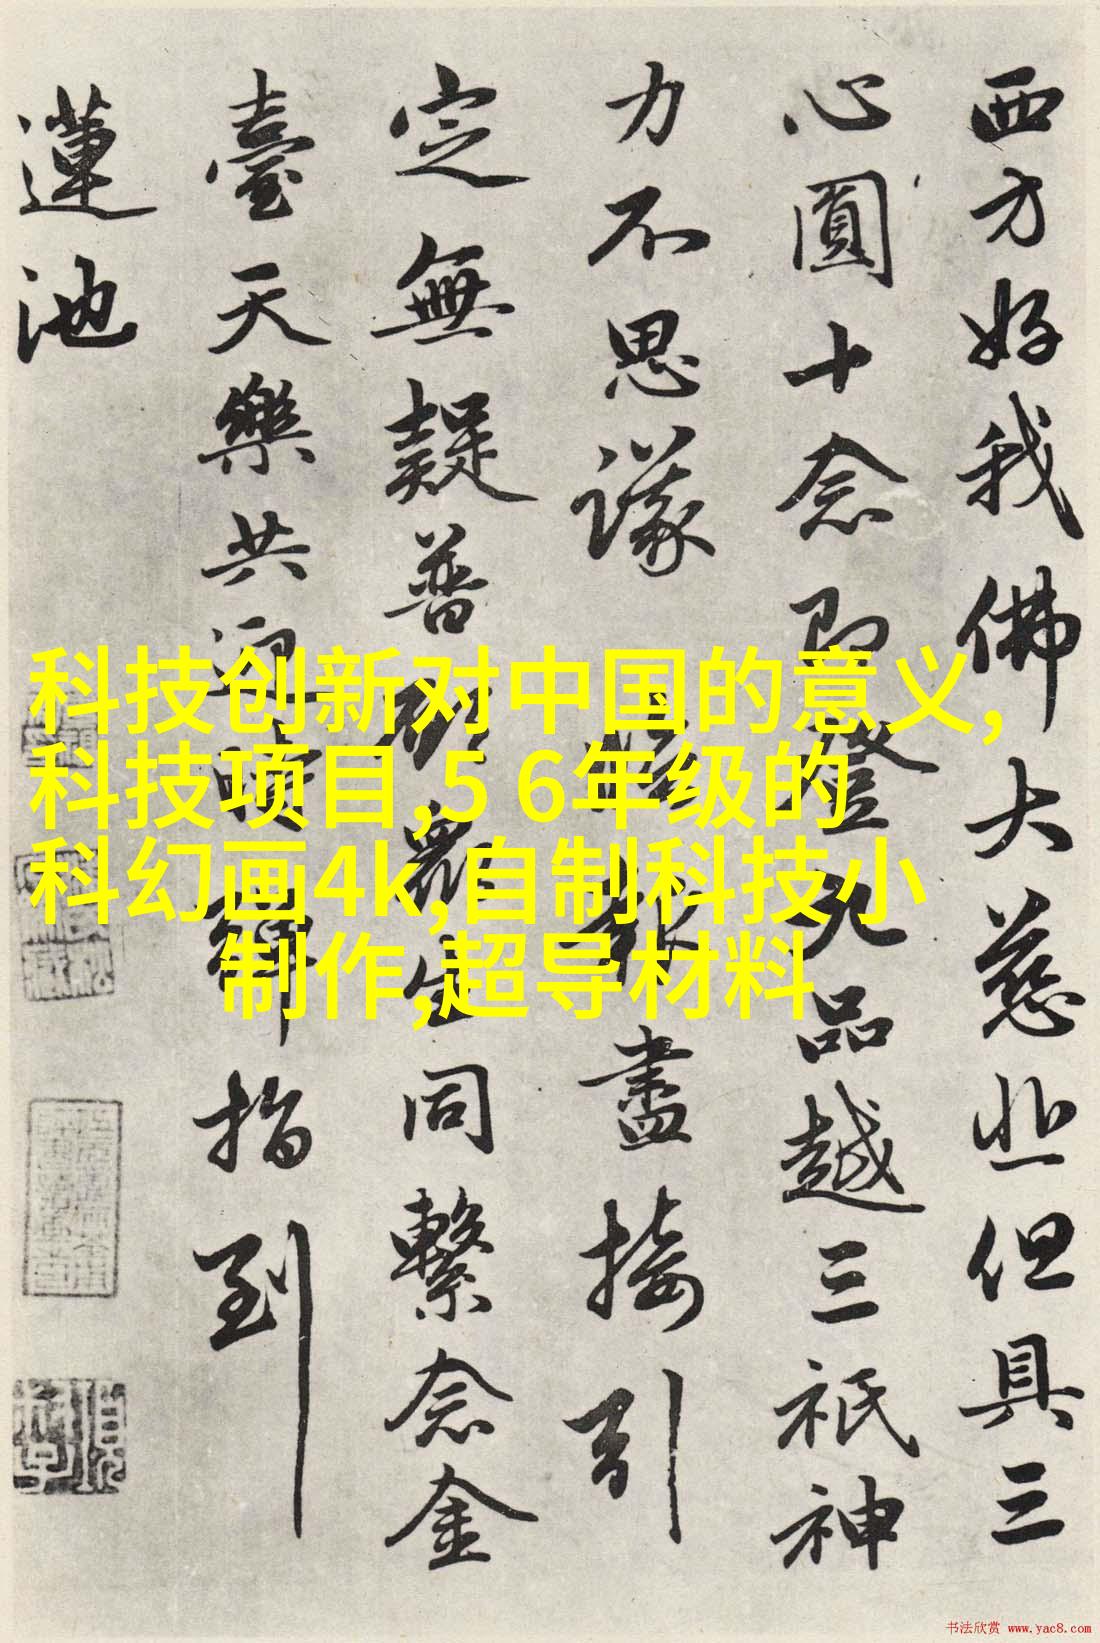 西方好我佛大慈悲但具三
心圓十念即登九品越三祇神
力不思議報盡接引
定無疑普勸眾生同繫念金
臺天樂共迎時彈指到
蓮池
科技创新对中国的意义,
科技项目,5 6年级的
科幻画4k,自制科技小
制作,超导材料
书法欣赏 www.yac8.com